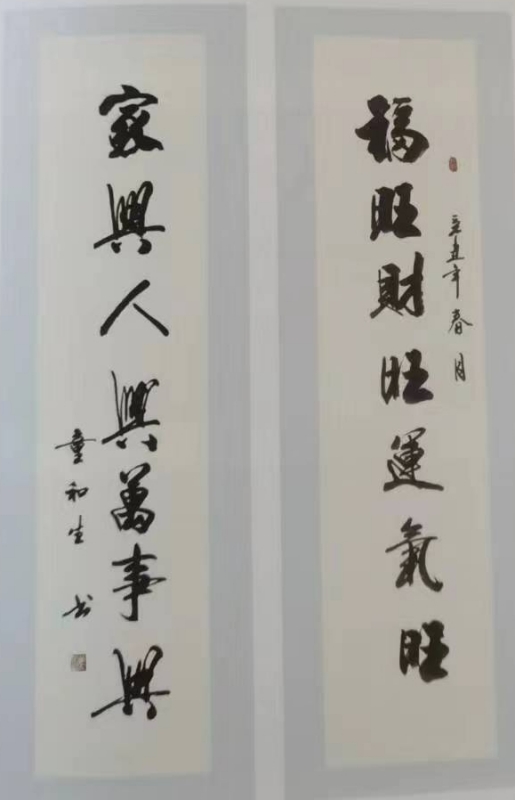 辛丑年春月
福旺財旺運氣旺
家興人興萬事興
童和生书